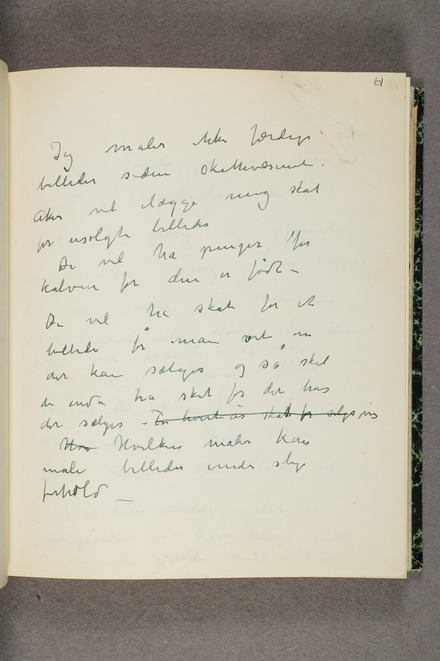 41
Jeg maler ikke færdige
billeder siden skattevæsenet
Aker vil ilægge mig skat
for usolgte billeder
De vil ha penger for
kalven før den er født –
De vil ha skat for et
billede før man vet om
det kan sælges og så skal
de enda ha skat for det hvis
det sælges – hvert år skat for
Hvo Hvilken maler kan
male billeder under slige
forhold –